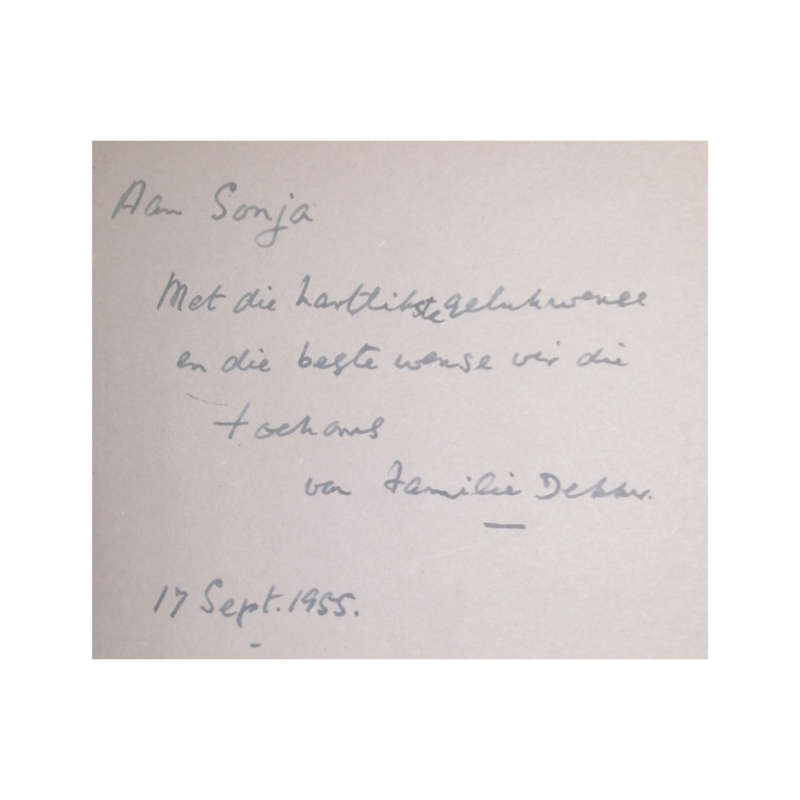 Aan Sonja
Met die hartlikste gelukwense
en die beste wense vir die
toekoms
van Familie Dekker.
17 Sept. 1955.